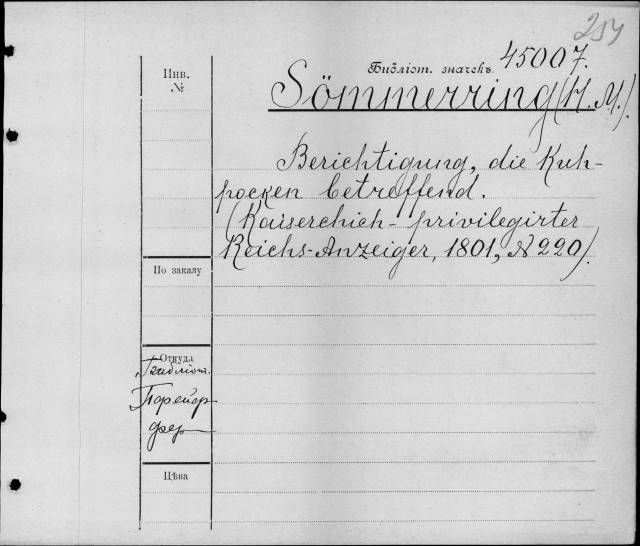 254
45007.
Библіот. значекъ
Инв.
№
Sömmerring (H. M.).
Berichtigung, die Kuh-
pocken betreffend.
(Kaiserchich-privilegirter
Reichs-Anzeiger, 1801, № 220).
По заказу
Откуда
Библіот.
Цѣна